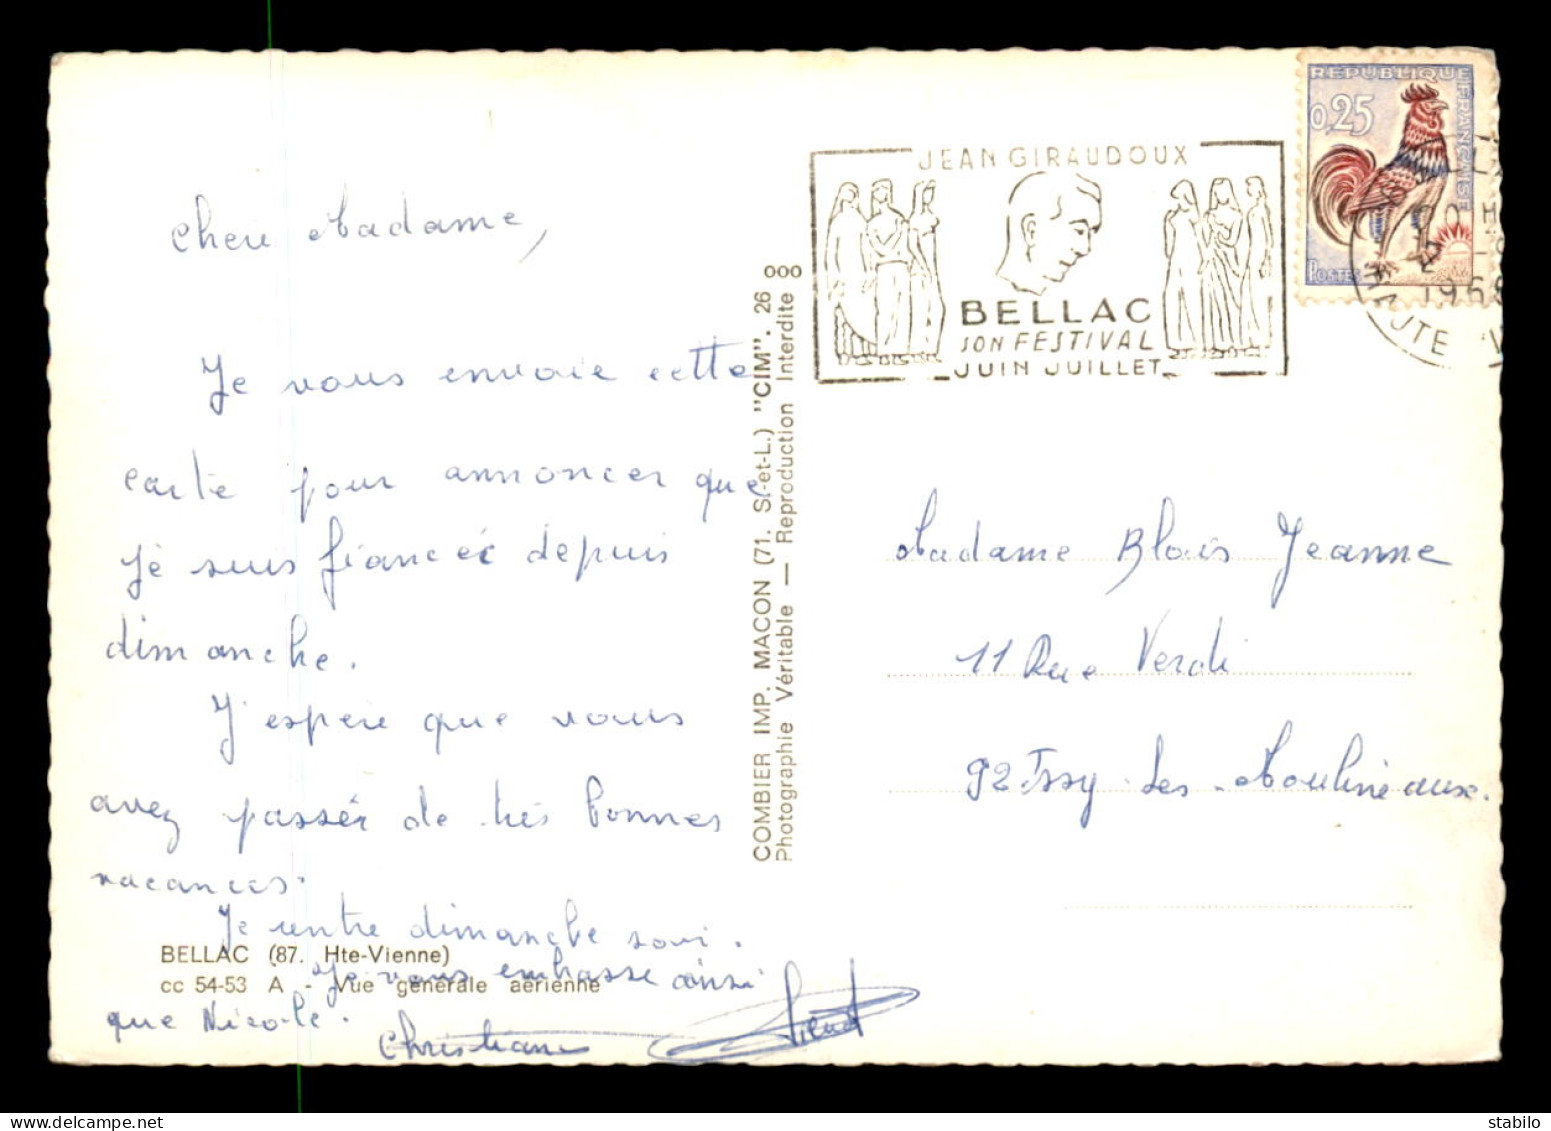 Chere Madame,
Je vous envoie cette
carte pour annoncer que
je suis fiancée depuis
dimanche.
J'espère que vous
avez passér de très bonnes
vacances.
Je rentre dimanche soir.
Je vous embrasse ainsi
que Nicole.
Christiane
BELLAC (87. Hte-Vienne)
cc 54-53 A - Vue générale aérienne
COMBIER IMP. MACON (71. S.-et-L.) "CIM". 26 000
Photographie Véritable — Reproduction Interdite
JEAN GIRAUDOUX
BELLAC
SON FESTIVAL
JUIN JUILLET
REPUBLIQUE FRANÇAISE
0,25
POSTES
1968
HAUTE V
Madame Blois Jeanne
11 Rue Verdi
92 Issy-Les-Moulineaux.